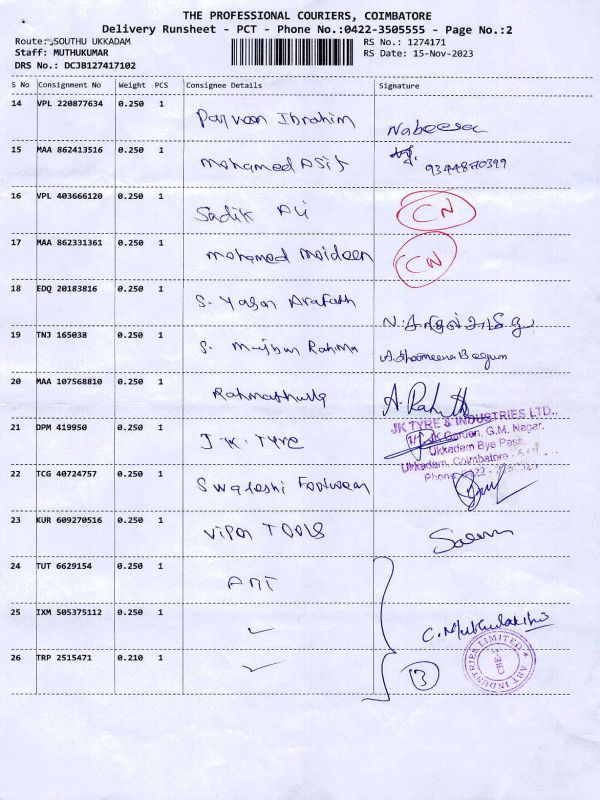 THE PROFESSIONAL COURIERS, COIMBATORE
Delivery Runsheet - PCT - Phone No.:0422-3505555 - Page No.:2
Route: SOUTHU UKKADAM
RS No.: 1274171
Staff: MUTHUKUMAR
RS Date: 15-Nov-2023
DRS No.: DCJB127417102
S No Consignment No Weight PCS Consignee Details Signature
14 VPL 220877634 0.250 1 Parveen Ibrahim Nabeesa
15 MAA 862413516 0.250 1 Mohamed Asif 9344870399
16 VPL 403666120 0.250 1 Sadik Ali CN
17 MAA 862331361 0.250 1 Mohamed Moideen CN
18 EDQ 20183816 0.250 1 S. Yasar Arafath
19 TNJ 165038 0.250 1 S. Mujbur Rahma A. Shameena Begum
20 MAA 107568810 0.250 1 Rahmathulla
21 DPM 419950 0.250 1 J.K. TYRE
JK TYRE & INDUSTRIES LTD.,
JK Garden, G.M. Nagar,
Ukkadam Bye Pass,
Ukkadam, Coimbatore
Phone
22 TCG 40724757 0.250 1 Swateshi Footwear
23 KUR 609270516 0.250 1 Viper TOOLS Saleem
24 TUT 6629154 0.250 1 ABT
25 IXM 505375112 0.250 1 ✓
26 TRP 2515471 0.210 1 ✓
ABT INDUSTRIES LIMITED